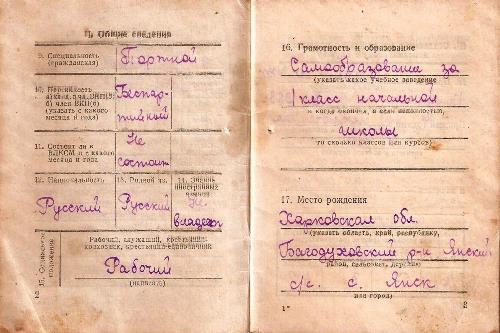 II. Общие сведения
9. Специальность
(гражданская)
Портной
10. Партийность
Беспар-
тивной
месяца и года)
11. Состоит ли в
ВЛКСМ и с какого
месяца и года
Не
состоит
12. Национальность
Русский
13. Родной яз.
Русский
14. Знание
иностранных
языков
Не
владеет
15. Социальное
положение
Рабочий, служащий, крестьянин-
колхозник, крестьянин-единоличник
Рабочий
(написать)
16. Грамотность и образование
Самообразование за
(указать какое учебное заведение
1 класс начальной
и когда окончил, а если неполностью,
школы
то сколько классов или курсов)
17. Место рождения
Харковская обл.
(указать область, край, республику,
Багодуховский р-н Янский
район, сельсовет, деревня
с/с. с. Янск
или город)
1*